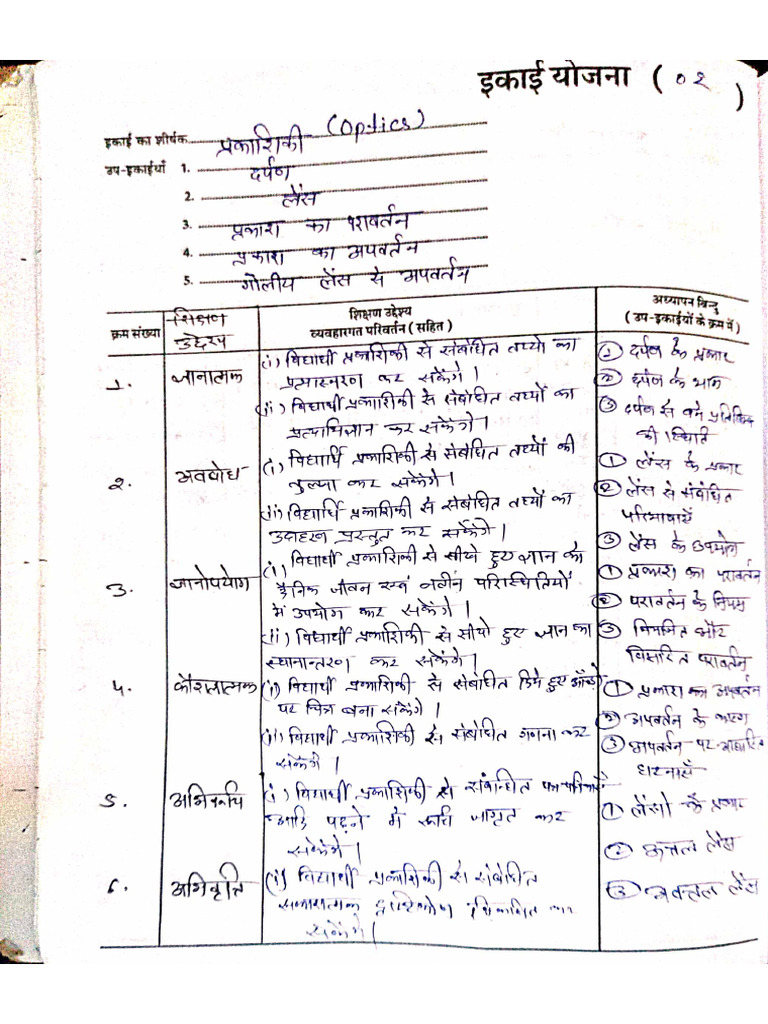 इकाई योजना ( 02 )
इकाई का शीर्षक प्रकाशिकी (Optics)
उप-इकाईयाँ 1. दर्पण
2. लेंस
3. प्रकाश का परावर्तन
4. प्रकाश का अपवर्तन
5. गोलीय लेंस से अपवर्तन
क्रम संख्या
शिक्षण उद्देश्य
शिक्षण उद्देश्य
व्यवहारगत परिवर्तन ( सहित )
अध्यापन बिन्दु
( उप-इकाईयों के क्रम में )
1. ज्ञानात्मक
(i) विद्यार्थी प्रकाशिकी से संबोधित तथ्यो का
प्रत्यास्मरण कर सकेंगे।
(ii) विद्यार्थी प्रकाशिकी से संबोधित तथ्यों का
प्रत्याभिज्ञान कर सकेंगे।
① दर्पण के प्रकार
② दर्पण के भाग
③ दर्पण से बने प्रतिबिम्ब
की स्थिति
2. अवबोध
(i) विद्यार्थि प्रकाशिकी से संबोधित तथ्यों की
तुल्या कर सकेंगे।
(ii) विद्यार्थि प्रकाशिकी से संबोधित तथ्यों का
उदाहरण प्रस्तुत कर सकेंगे।
① लेंस के प्रकार
② लेंस से संबोधित
परिभाषाएँ
③ लेंस के उपयोग
3. ज्ञानोपयोग
(i) विद्यार्थी प्रकाशिकी से सीखे हुए ज्ञान को
दैनिक जीवन एवं नवीन परिस्थितियों
में उपयोग कर सकेंगे।
(ii) विद्यार्थी प्रकाशिकी से सीखे हुए ज्ञान का
स्थानान्तरण कर सकेंगे।
① प्रकाश का परावर्तन
② परावर्तन के नियम
③ नियमित और
विसारित परावर्तन
4. कौशलात्मक
(i) विद्यार्थी प्रकाशिकी से संबोधित दिये हुए आँकड़ो
पर चित्र बना सकेंगे।
(ii) विद्यार्थी प्रकाशिकी से संबोधित गणना कर
सकेंगे।
① प्रकाश का अपवर्तन
② अपवर्तन के कारण
③ अपवर्तन पर आधारित
घटनाएँ
5. अभिरूचि
(i) विद्यार्थी प्रकाशिकी से संबन्धित पत्र पत्रिकाएँ
आदि पढ़ने में रूचि जागृत कर
सकेंगे।
① लेंसो के प्रकार
② उत्तल लेंस
6. अभिवृति
(i) विद्यार्थी प्रकाशिकी से संबोधित
सकारात्मक दृष्टिकोण विकसित कर
सकेंगे।
③ अवतल लेंस